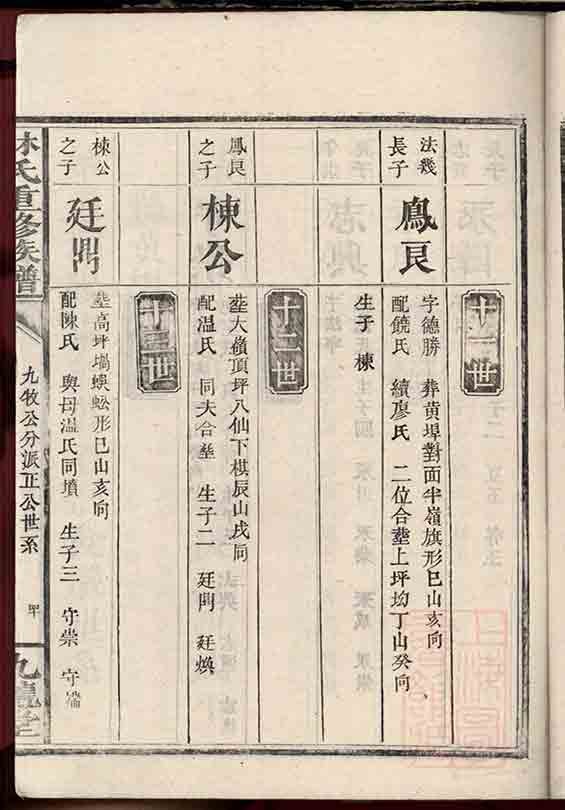 十一世
法幾
長子
鳳艮
字德勝 葬黄埠對面半嶺旗形巳山亥向
配饒氏 續廖氏 二位合塟上坪坳丁山癸向
生子棟
十二世
鳳艮
之子
棟公
塟大嶺頂坪八仙下棋辰山戌向
配温氏 同夫合塟 生子二 廷門 廷煥
十三世
棟公
之子
廷門
塟高坪塥蜈蚣形巳山亥向
配陳氏 與母温氏同墳 生子三 守崇 守端
林氏重修族譜
九牧公分派正公世系
九龍堂